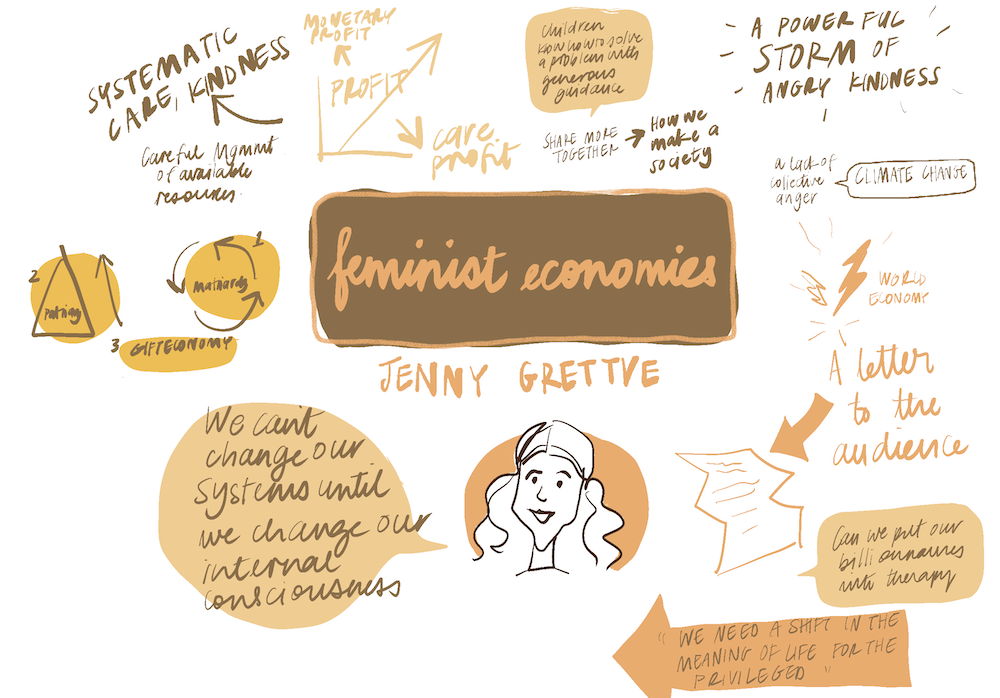 SYSTEMATIC
CARE, KINDNESS
Careful Mgmnt
of available
resources.
MONETARY
PROFIT
PROFIT
care
profit
Children
know how to solve
a problem with
generous
guidance
SHARE MORE
TOGETHER
How we
make a
society
A POWERFUL
STORM OF
ANGRY KINDNESS
a lack of
collective
anger
CLIMATE CHANGE
feminist economies
JENNY GRETTVE
2
1
Matriarchy
3
GIFT ECONOMY
WORLD
ECONOMY
A letter
to the
audience
We can't
change our
systems until
we change our
internal
consciousness
Can we put our
billionnaires
into therapy
"WE NEED A SHIFT IN THE
MEANING OF LIFE FOR THE
PRIVILEGED"